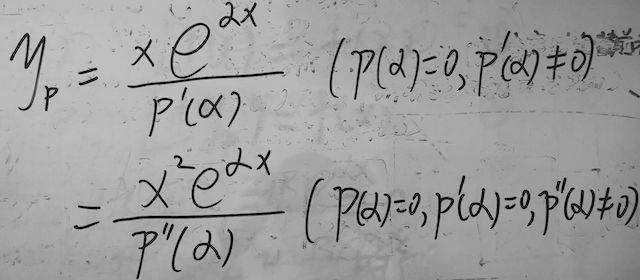 y_p = \frac{x e^{αx}}{p'(α)} (p(α)=0, p'(α)≠0)
= \frac{x^2 e^{αx}}{p''(α)} (p(α)=0, p'(α)=0, p''(α)≠0)